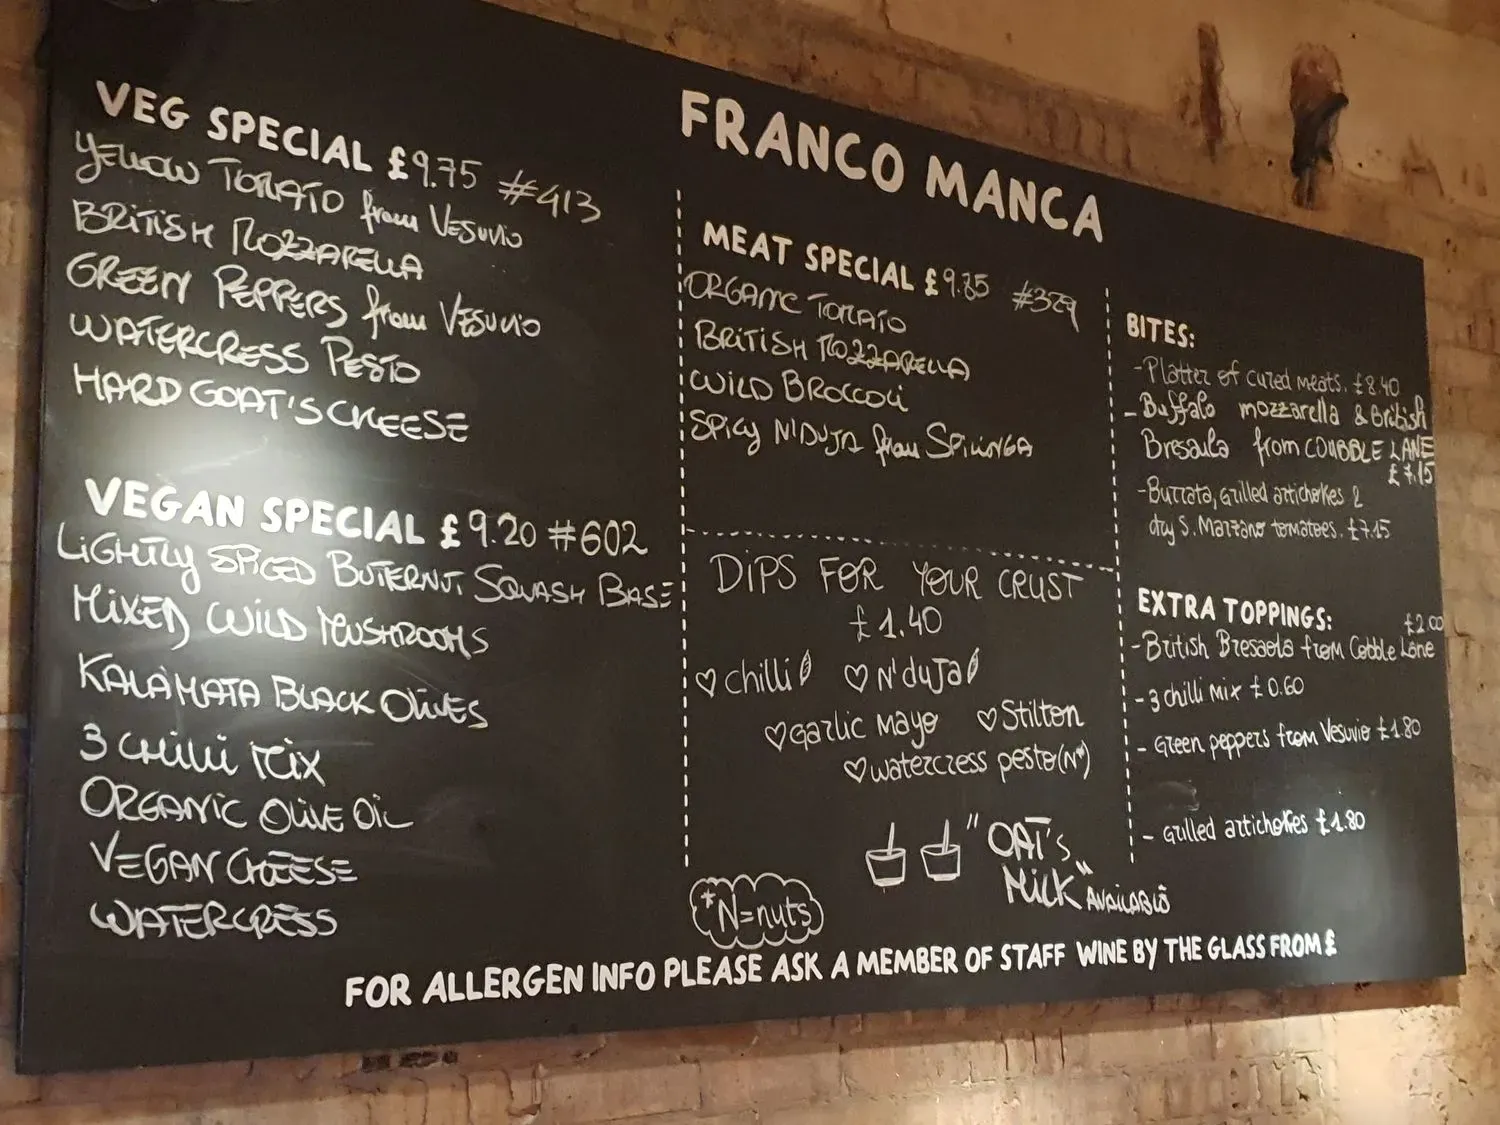 FRANCO MANCA
VEG SPECIAL £9.75 #413
YELLOW TOMATO from VESUVIO
BRITISH MOZZARELLA
GREEN PEPPERS from VESUVIO
WATERCRESS PESTO
HARD GOAT'S CHEESE
VEGAN SPECIAL £9.20 #602
LIGHTLY SPICED BUTERNUT SQUASH BASE
MIXED WILD MUSHROOMS
KALAMATA BLACK OLIVES
3 CHILLI MIX
ORGANIC OLIVE OIL
VEGAN CHEESE
WATERCRESS
MEAT SPECIAL £ #329
ORGANIC TOMATO
BRITISH MOZZARELLA
WILD BROCCOLI
SPICY N'DUJA from SPILINGA
DIPS FOR YOUR CRUST
£1.40
♡ chilli ♡ N'duja
♡ Garlic Mayo ♡ Stilton
♡ watercress pesto (N*)
"OAT'S
MILK" AVAILABLE
*N=nuts
BITES:
- Platter of cured meats. £8.40
- Buffalo mozzarella & British
Bresaola from COBBLE LANE
£7.15
- Burrata, grilled artichokes &
dry S. Marzano tomatoes. £7.15
EXTRA TOPPINGS: £2.00
- British Bresaola from Cobble Lane
- 3 chilli mix £0.60
- Green peppers from Vesuvio £1.80
- Grilled artichokes £1.80
FOR ALLERGEN INFO PLEASE ASK A MEMBER OF STAFF WINE BY THE GLASS FROM £